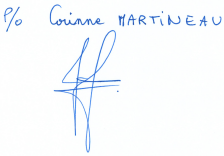 P/o Corinne MARTINEAU